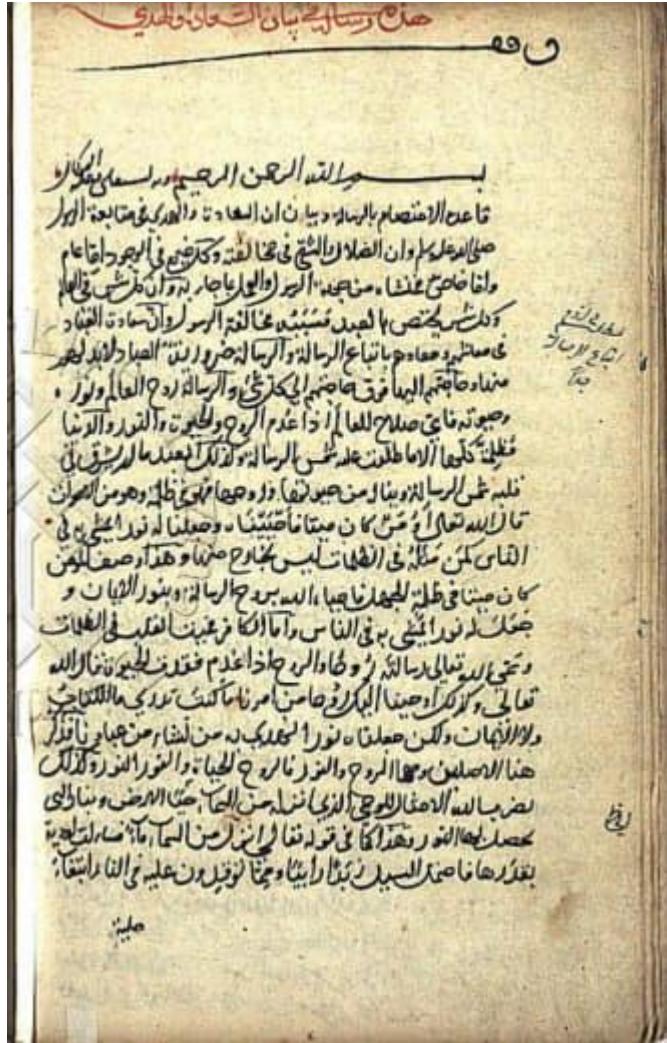 هذه رسالة في بيان السعادة والهدى
وقف
بسم الله الرحمن الرحيم وبه نستعين
قاعدة الاعتصام بالرسالة وبيان ان السعادة والهدى في متابعة الرسول
صلى الله عليه وسلم وان الضلال والشقى في مخالفته وكل خير في الوجود اما عام
واما خاص فمنشاه من جهة الرسول والعمل بما جاء به وان كل شر في العالم
وكل شر يختص بالعبد فسببه مخالفة الرسول وان سعادة العباد
في معاشهم ومعادهم باتباع الرسالة والرسالة ضرورية للعباد لا بد لهم
منها وحاجتهم اليها فوق حاجتهم الى كل شيء والرسالة روح العالم ونوره
وحيوته فاي صلاح للعالم اذا عدم الروح والحيوة والنور والدنيا
مظلمة كلها الا ما طلعت عليه شمس الرسالة وكذلك العبد ما لم يشرق في
قلبه شمس الرسالة ويناله من حيوتها وروحها فهو في ظلمة وهو من الاموات
قال الله تعالى أَوَمَنْ كان ميتا فأحْيَيْناه وجعلنا له نورا يمشي به في
الناس كمن مثله في الظلمات ليس بخارج منها وهذا وصف المؤمن
كان ميتا في ظلمة الجهل فاحياه الله بروح الرسالة وبنور الايمان و
جعل له نورا يمشي به في الناس واما الكافر فميت القلب في الظلمات
وسمى الله تعالى رسالته روحا والروح اذا عدم فقدت الحيوة قال الله
تعالى وكذلك اوحينا اليك روحا من امرنا ما كنت تدري ما الكتاب
ولا الايمان ولكن جعلناه نورا نهدي به من نشاء من عبادنا فذكر
هنا الاصلين وهما الروح والنور فالروح الحياة والنور النور وكذلك
يضرب الله الامثال للوحي الذي انزله من السماء حيا الارض وبالنار التي
يحصل بها النور وهذا كما في قوله تعالى انزل من السماء ماء فسالت اودية
بقدرها فاحتمل السيل زبدا رابيا ومما توقدون عليه في النار ابتغاء
حلية